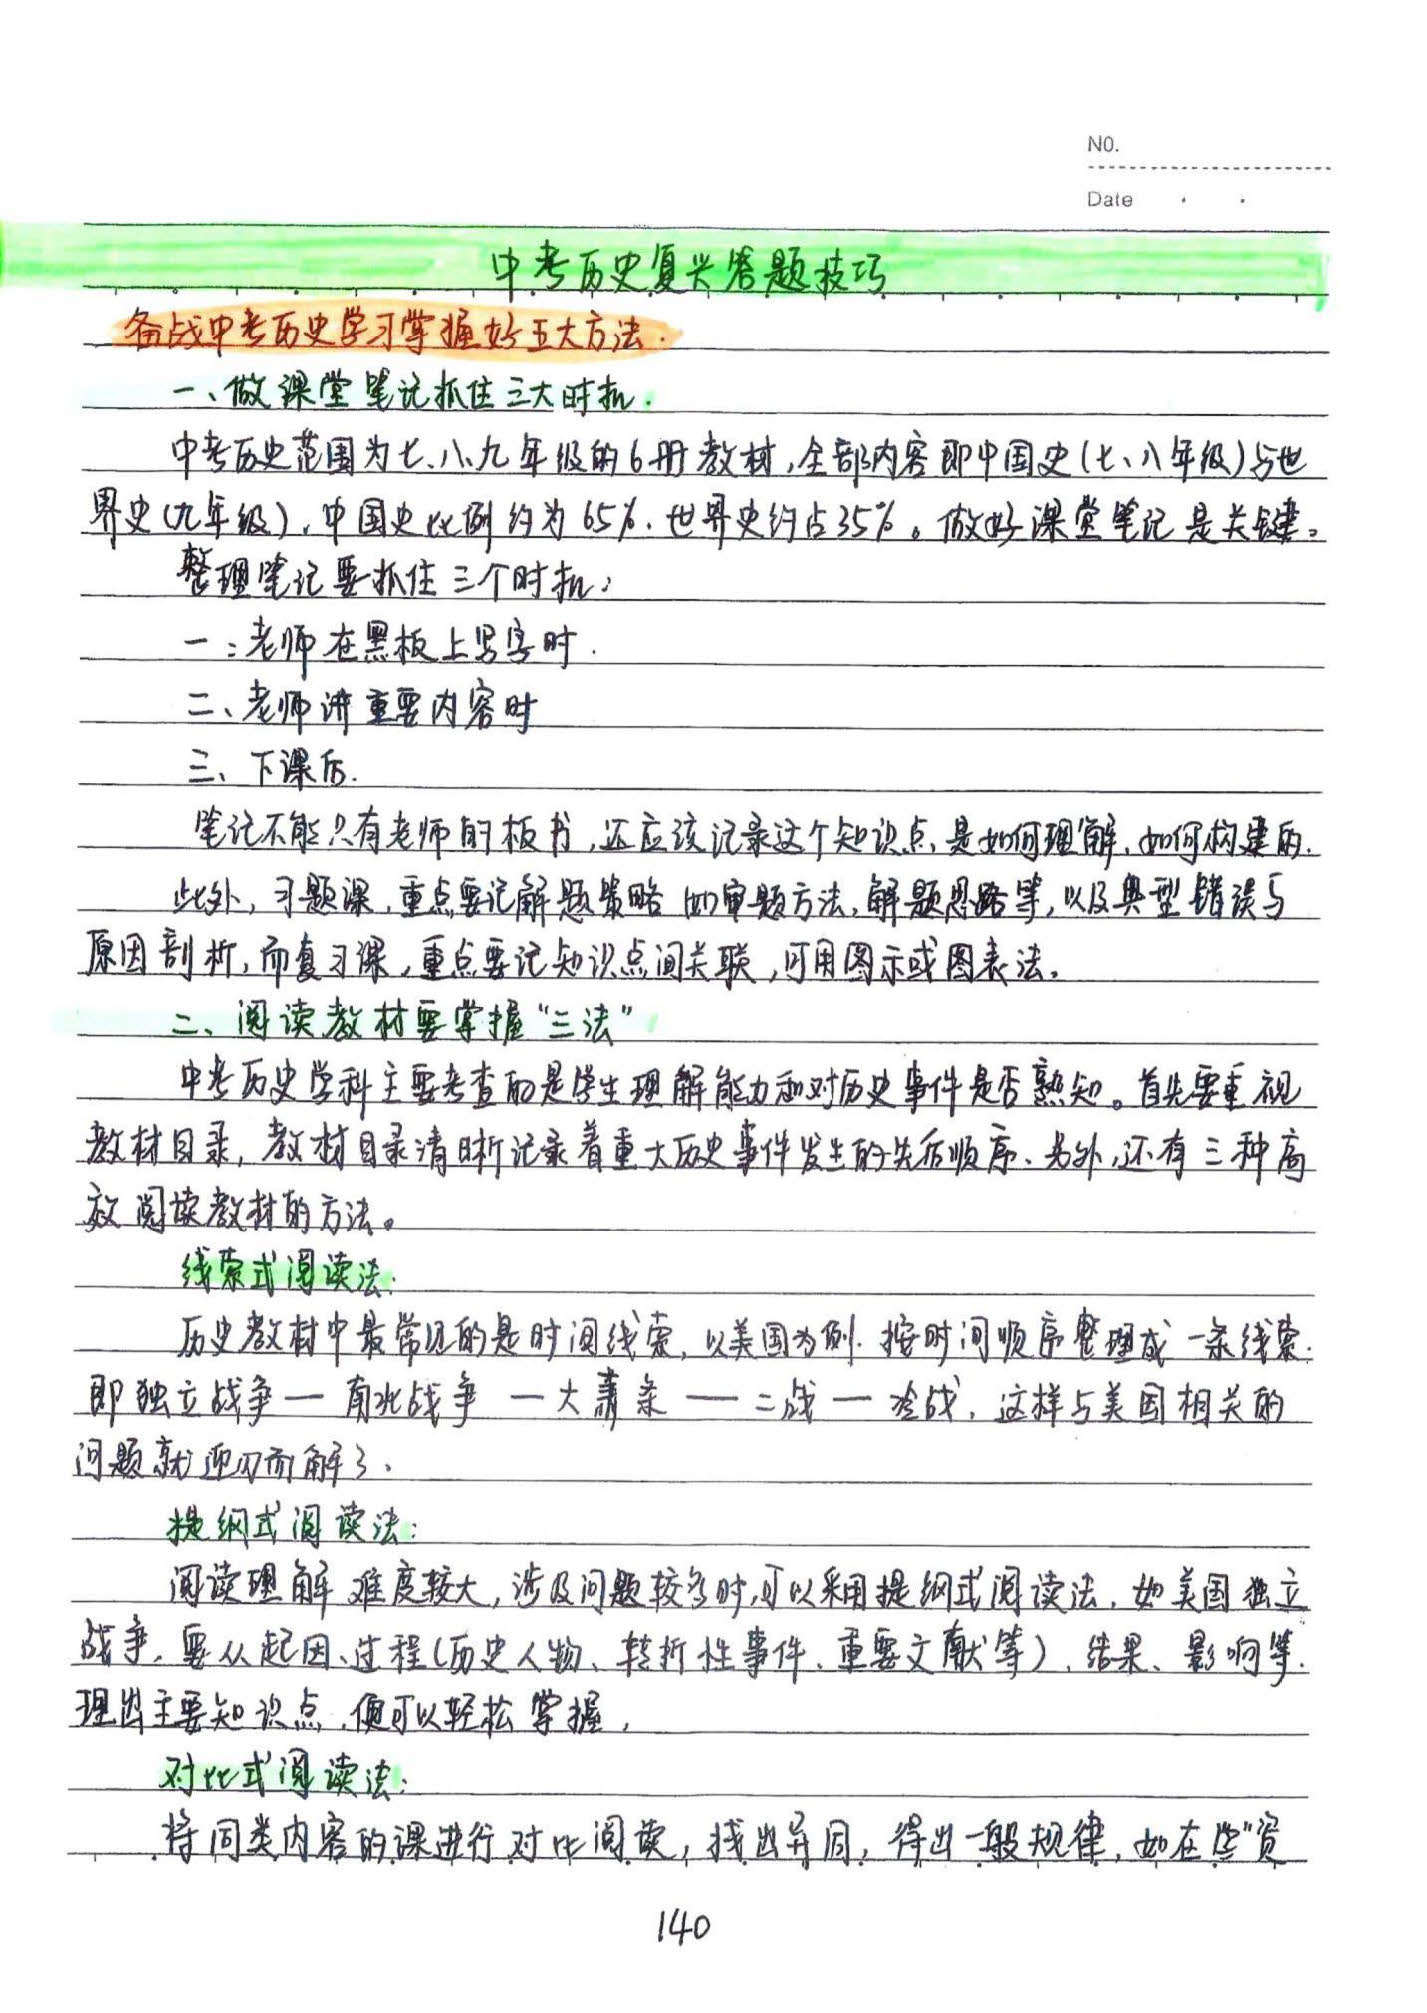 NO.
Date
中考历史复兴答题技巧
备战中考历史学习掌握好五大方法.
一、做课堂笔记抓住三大时机.
中考历史范围为七、八、九年级的6册教材,全部内容即中国史(七、八年级)与世
界史(九年级),中国史比例约为65%.世界史约占35%。做好课堂笔记是关键。
整理笔记要抓住三个时机:
一:老师在黑板上写字时.
二、老师讲重要内容时
三、下课后.
笔记不能只有老师的板书,还应该记录这个知识点,是如何理解、如何构建的.
此外,习题课,重点要记解题策略 如审题方法,解题思路等,以及典型错误与
原因剖析,而复习课,重点要记知识点间关联,可用图示或图表法。
二、阅读教材要掌握“三法”
中考历史学科主要考查的是学生理解能力和对历史事件是否熟知。首先要重视
教材目录,教材目录清晰记录着重大历史事件发生的先后顺序、另外,还有三种高
效阅读教材的方法。
线索式阅读法:
历史教材中最常见的是时间线索,以美国为例.按时间顺序整理成一条线索.
即独立战争—南北战争—大萧条—二战—冷战,这样与美国相关的
问题就迎刃而解了、
提纲式阅读法:
阅读理解难度较大,涉及问题较多时,可以采用提纲式阅读法,如美国独立
战争,要从起因、过程(历史人物、转折性事件、重要文献等)、结果、影响等.
理出主要知识点,便可以轻松掌握,
对比式阅读法:
将同类内容的课进行对比阅读,找出异同,得出一般规律,如在学“资
140